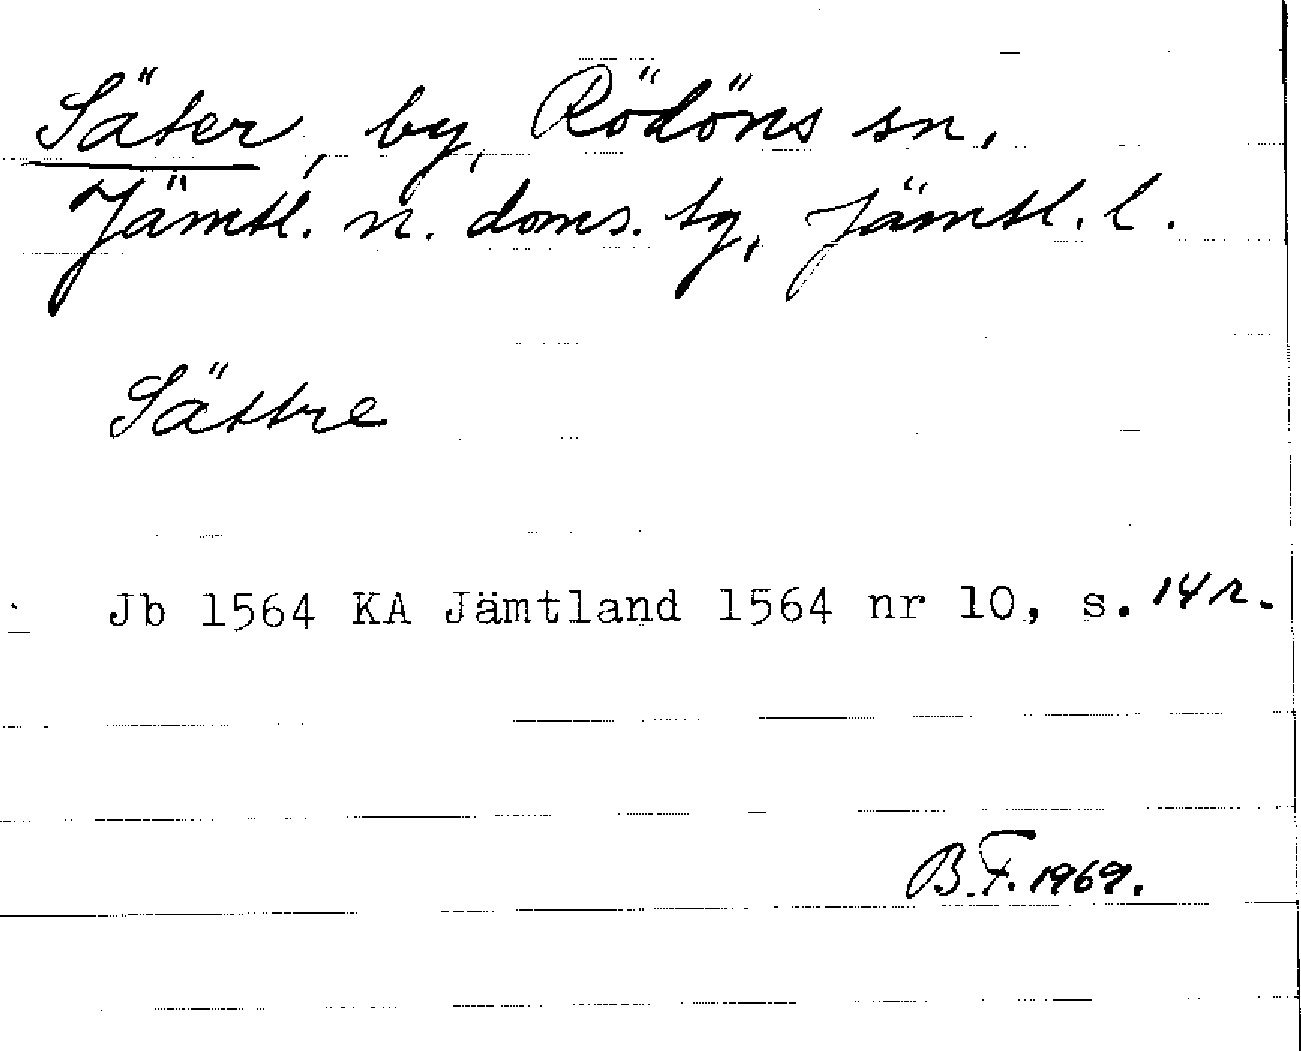 Säter, by, Rödöns sn,
Jämtl. n. doms. tg, Jämtl. l.
Sättre
Jb 1564 KA Jämtland 1564 nr 10, s. 14r.
B.F. 1969.